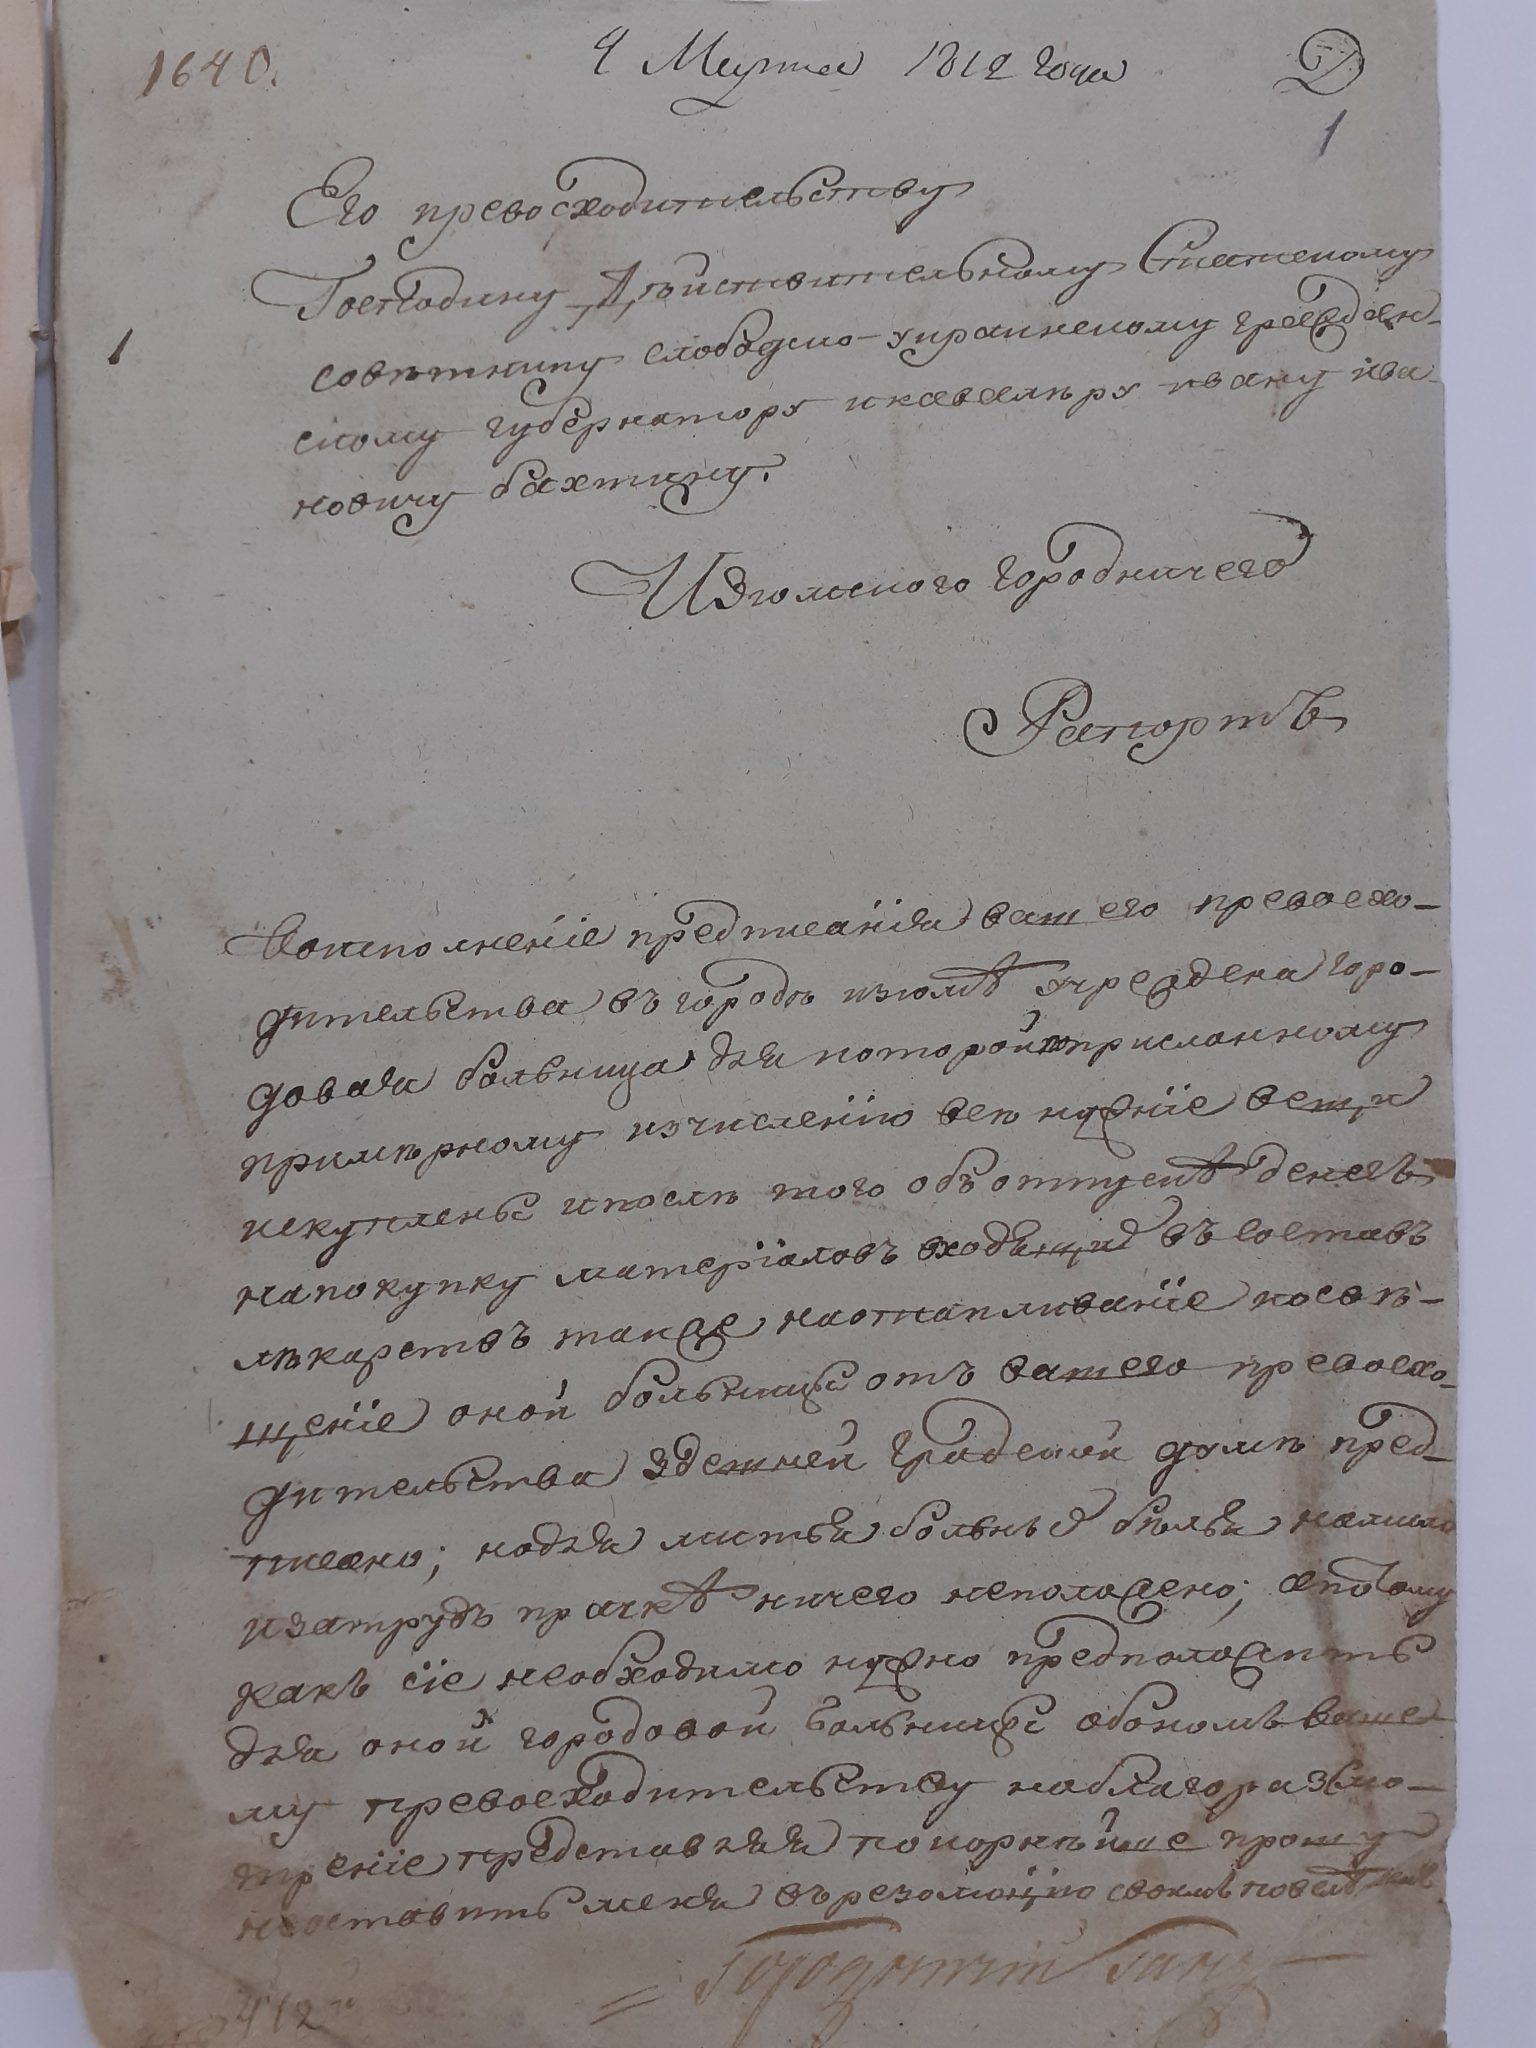 1640.
4 Марта 1812 года
1
Его превосходительству
Господину Дѣйствительному Статскому
1
совѣтнику слободско-украинскому граждан-
скому губернатору и кавалѣру ивану ива-
новичу бахтину.
Изюмского городничего
Рапортъ
Воисполненіе предписанія вашего превосхо-
дительства въ городѣ изюмѣ учреждена горо-
довая больница для которой поприсланному
примѣрному изчисленію всѣ нужніе вещи
искупленьι и послѣ того объ отпускѣ денегъ
напокупку матеріаловъ входящих въ составъ
лѣкарствъ также наотапливаніе и освѣ-
щеніе оной больницы отъ вашего превосхо-
дительства здешней градской думѣ пред-
писано; но для митья больных бѣлья намыло
и затрудъ прачкѣ ничего неположено; а потому
какъ сіе необходимо нужно предположить
для оной городовой больницы обономъ ваше-
му превосходительству наблагоразсмо-
трѣніе представляя покорнѣйше прошу
неоставить меня въ резолюцію своимъ
Городничий